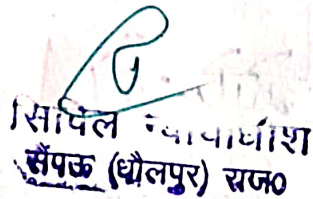 सिविल न्यायाधीश
सैंपऊ (धौलपुर) राज०